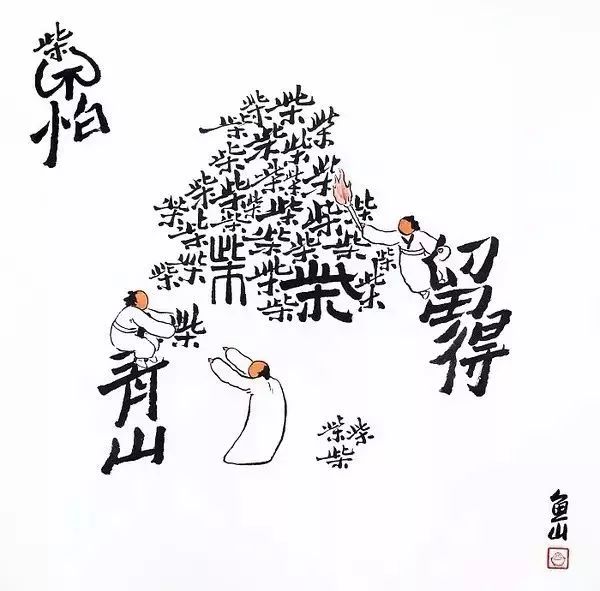 柴不怕
柴柴
柴柴
柴柴
柴柴柴柴柴
柴柴柴柴柴柴柴
柴柴柴柴柴
柴柴柴柴柴柴柴
柴柴
留得
柴
青山
柴柴
柴
鱼山